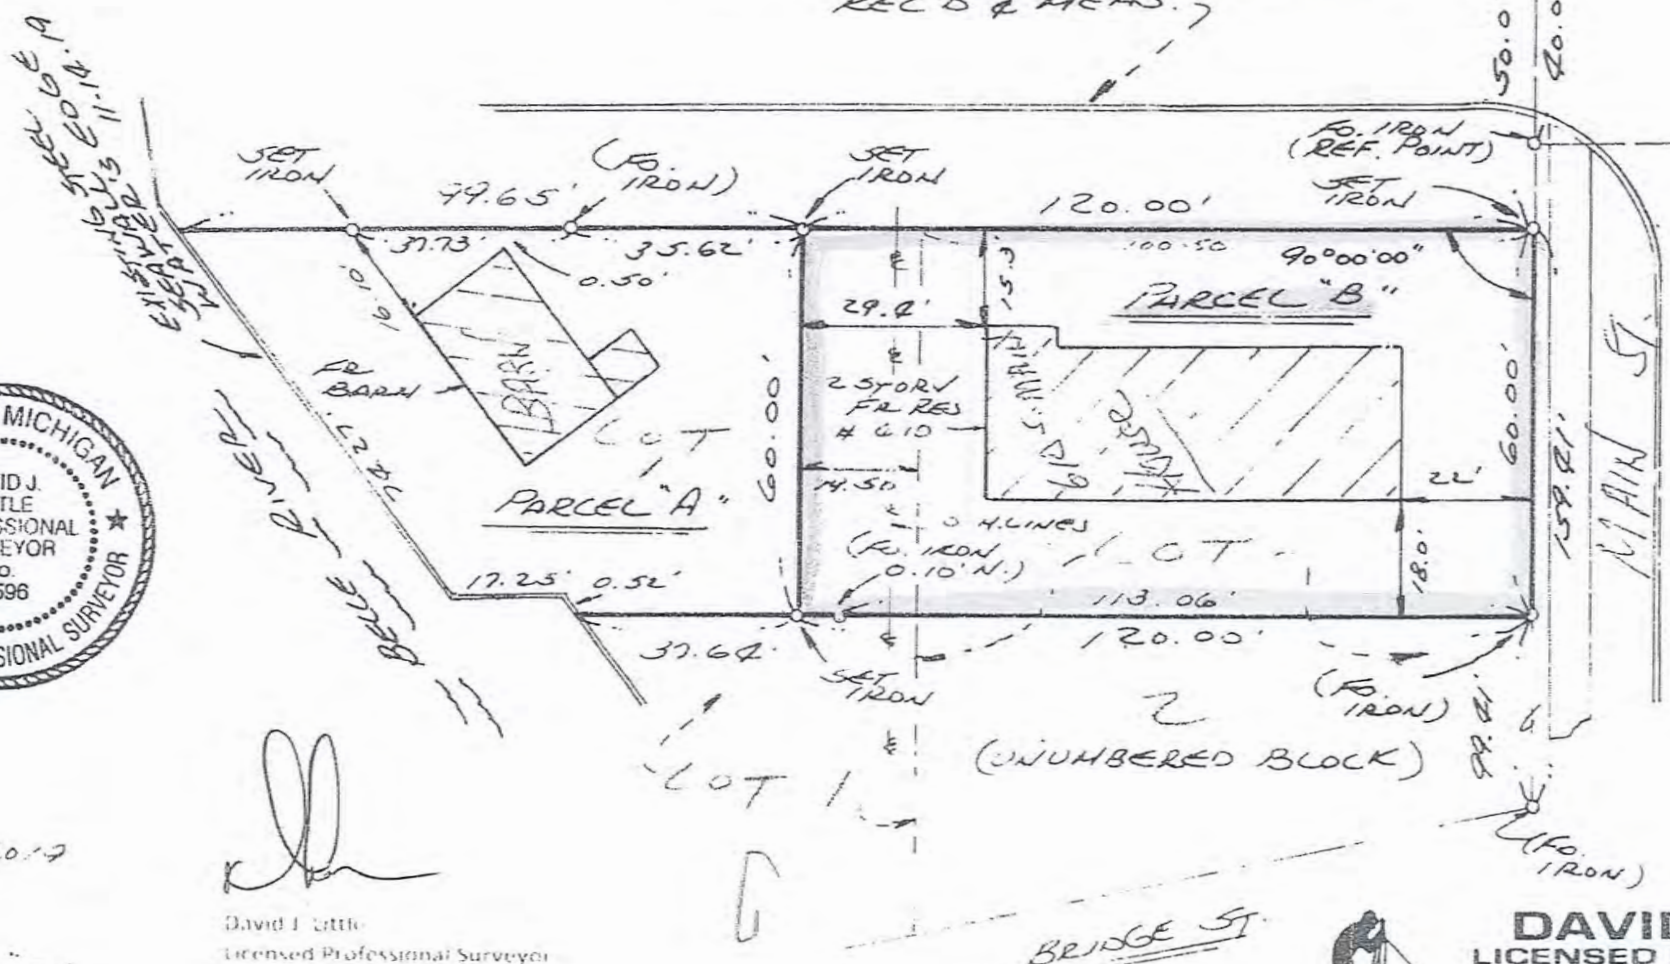 REC'D & MEAS.
50.0
EXISTING STEEL
SEAWALL
WATER
11.14.19
SET
IRON
99.65'
(FO.
IRON)
SET
IRON
120.00'
FO. IRON
(REF. POINT)
SET
IRON
37.73'
35.62'
100.50
90°00'00"
16.10'
0.50'
15.3'
PARCEL "B"
29.4'
BARN
FR
BARN
60.00'
2 STORY
FR RES
# 610
610 S. MAIN
HOUSE
60.00'
159.41'
MAIN ST.
LOT
1
14.50
22'
PARCEL "A"
O.H. LINES
(FO. IRON
0.10' N.)
LOT
18.0'
74.27'
BELLE RIVER
17.25'
0.52'
113.06'
120.00'
37.64'
SET
IRON
(FO.
IRON)
2
(UNUMBERED BLOCK)
99.41'
LOT 1
(FO.
IRON)
BRIDGE ST.
MICHIGAN
ID J.
TLE
SSIONAL
EYOR
O.
596
SIONAL SURVEYOR
David J Little
Licensed Professional Surveyor
DAVI
LICENSED